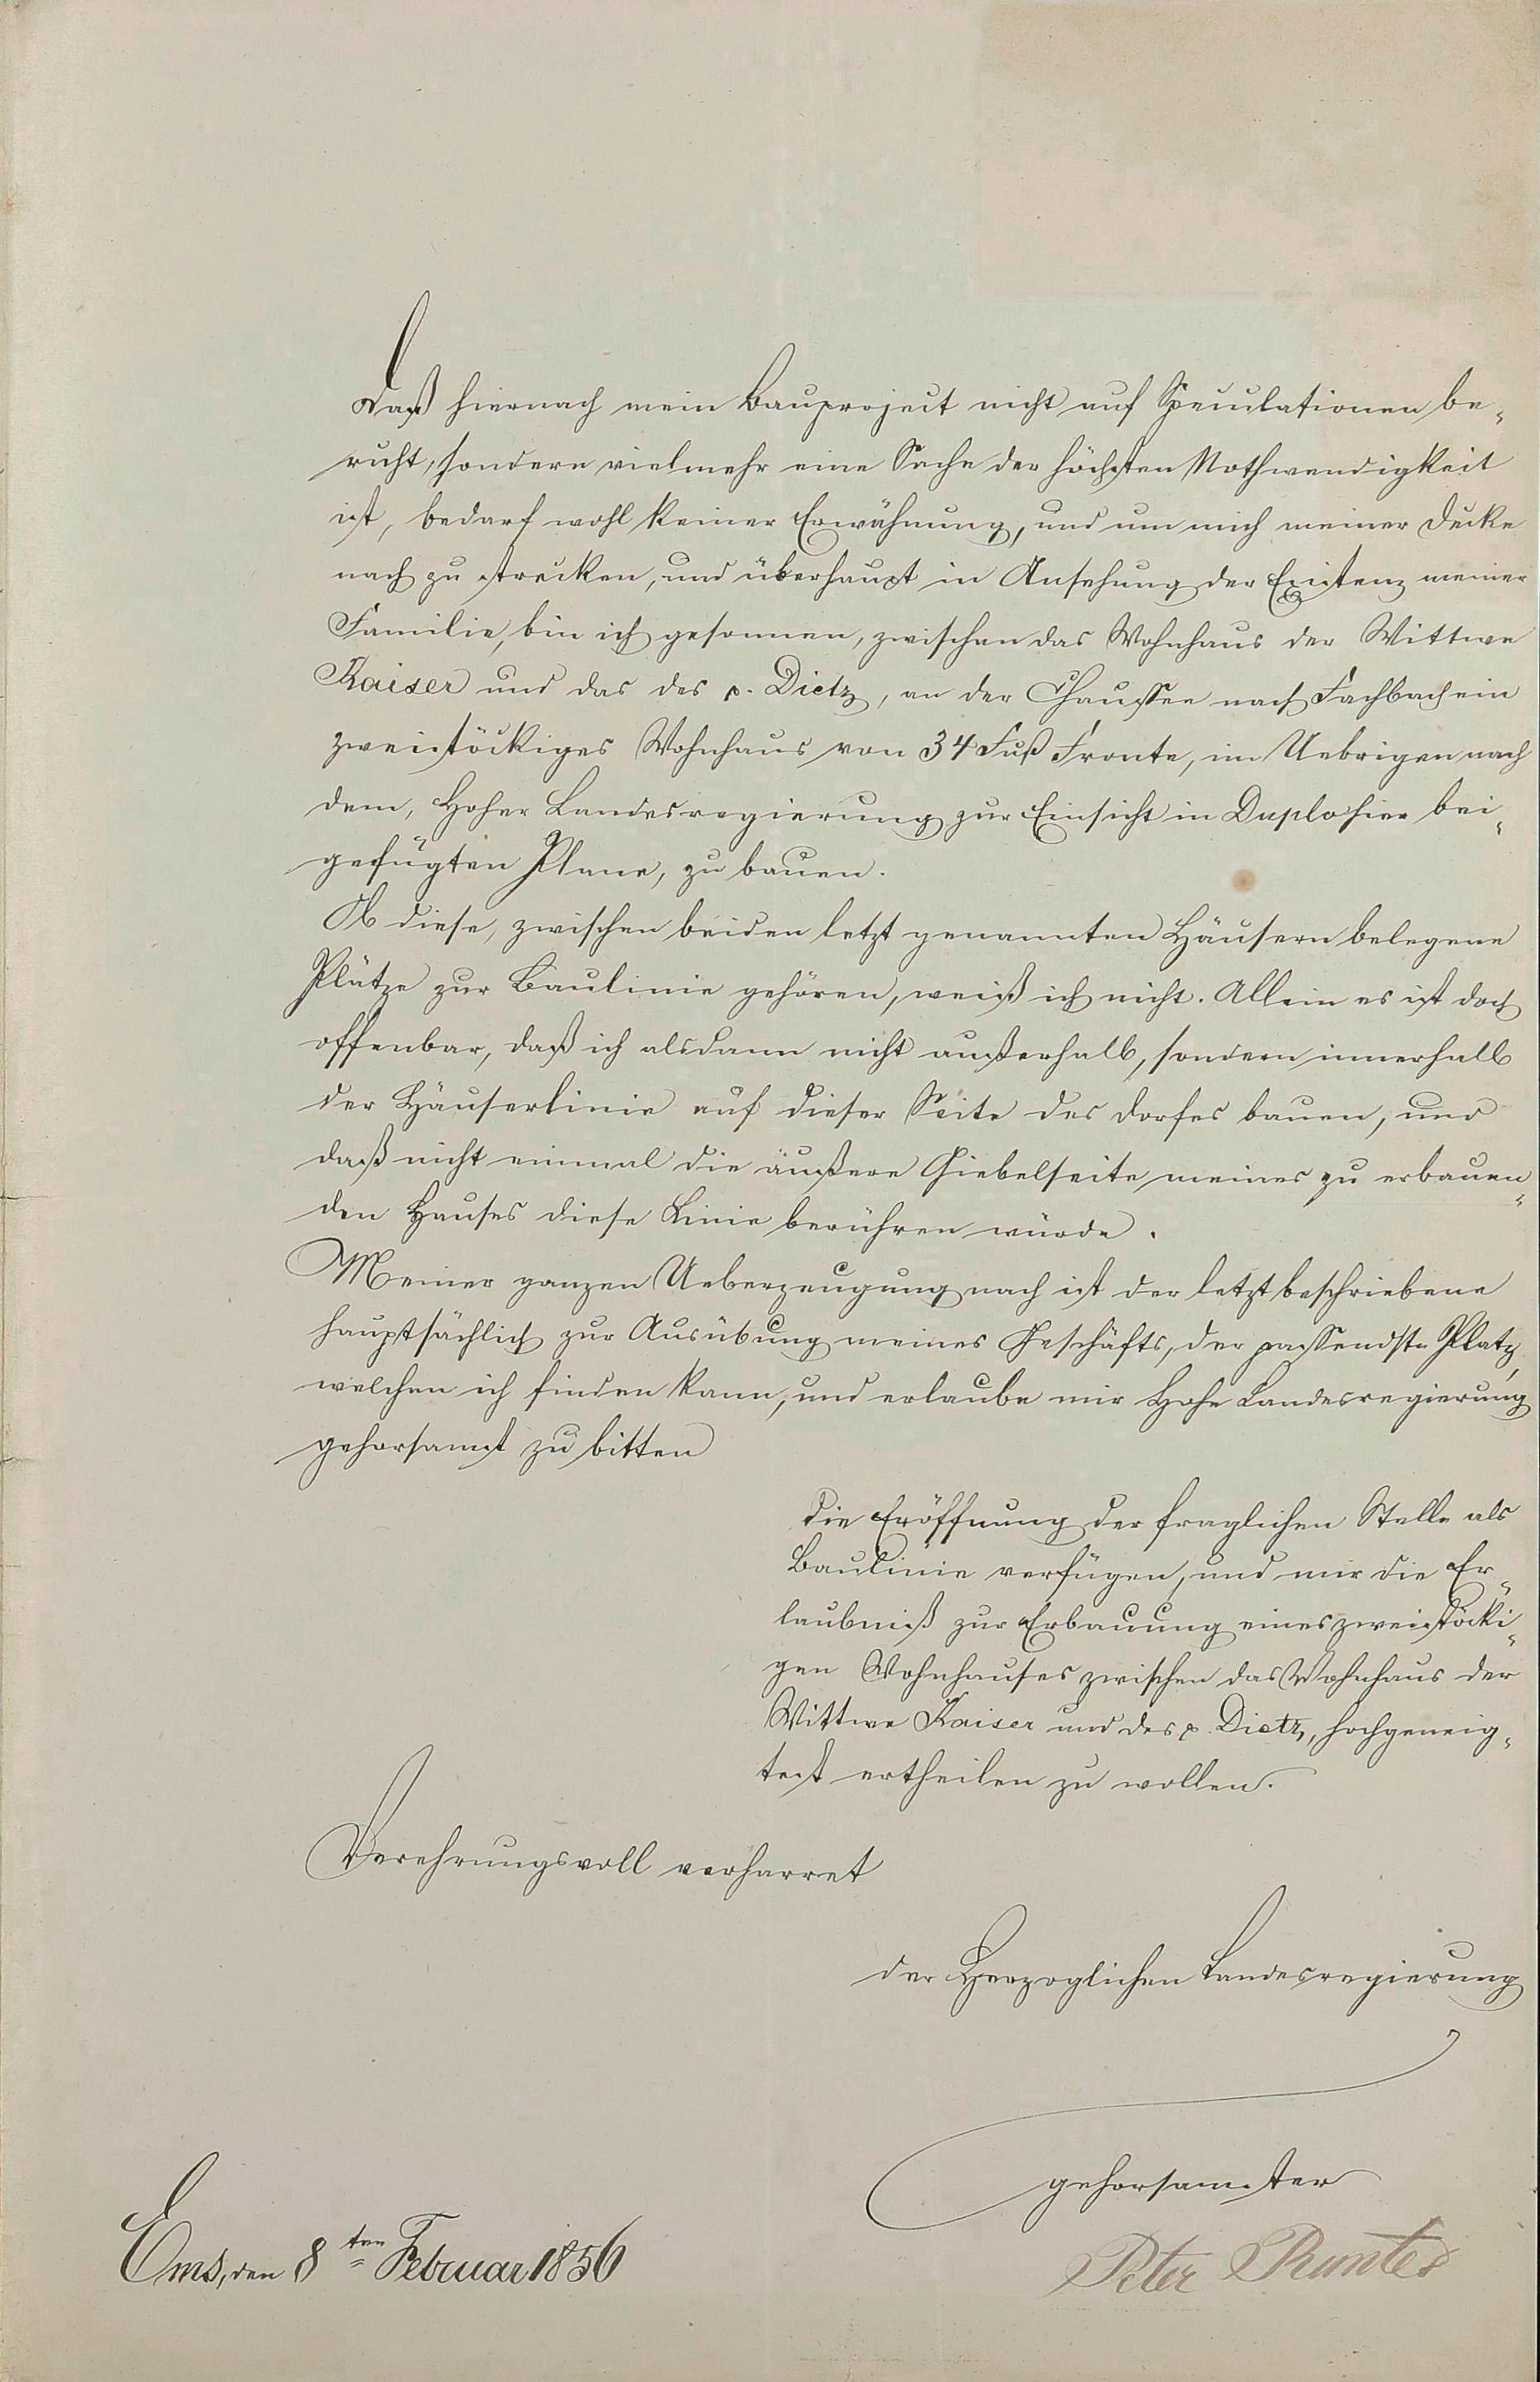 Daß hiernach mein Bauproject nicht auf Speculationen be-
ruht, sondern vielmehr eine Sache der höchsten Nothwendigkeit
ist, bedarf wohl keiner Erwähnung, und um mich meiner Decke
nach zu strecken, und überhaupt in Ansehung der Existenz meiner
Familie, bin ich gesonnen, zwischen das Wohnhaus der Wittwe
Kaiser und das des p. Dietz, an der Chaussee nach Fachbach ein
zweistöckiges Wohnhaus von 34 Fuß Fronte, im Uebrigen nach
dem, Hoher Landesregierung zur Einsicht in Duplo hier bei-
gefügten Plane, zu bauen.
Ob diese, zwischen beiden letzt genannten Häusern belegene
Plätze zur Baulinie gehören, weiß ich nicht. Allein es ist doch
offenbar, daß ich alsdann nicht außerhalb, sondern innerhalb
der Häuserlinie auf dieser Seite des Dorfes bauen, und
daß nicht einmal die äußere Giebelseite meines zu erbauen-
den Hauses diese Linie berühren würde.
Meiner ganzen Ueberzeugung nach ist der letzt beschriebene
hauptsächlich zur Ausübung meines Geschäfts, der passendste Platz,
welchen ich finden kann, und erlaube mir Hohe Landesregierung
gehorsamst zu bitten
die Eröffnung der fraglichen Stelle als
Baulinie verfügen, und mir die Er-
laubniß zur Erbauung eines zweistöcki-
gen Wohnhauses zwischen das Wohnhaus der
Wittwe Kaiser und des p. Dietz, hochgeneig-
test ertheilen zu wollen.
Verehrungsvoll verharret
der Herzoglichen Landesregierung
gehorsamster
Ems, den 8ten Februar 1856
Peter